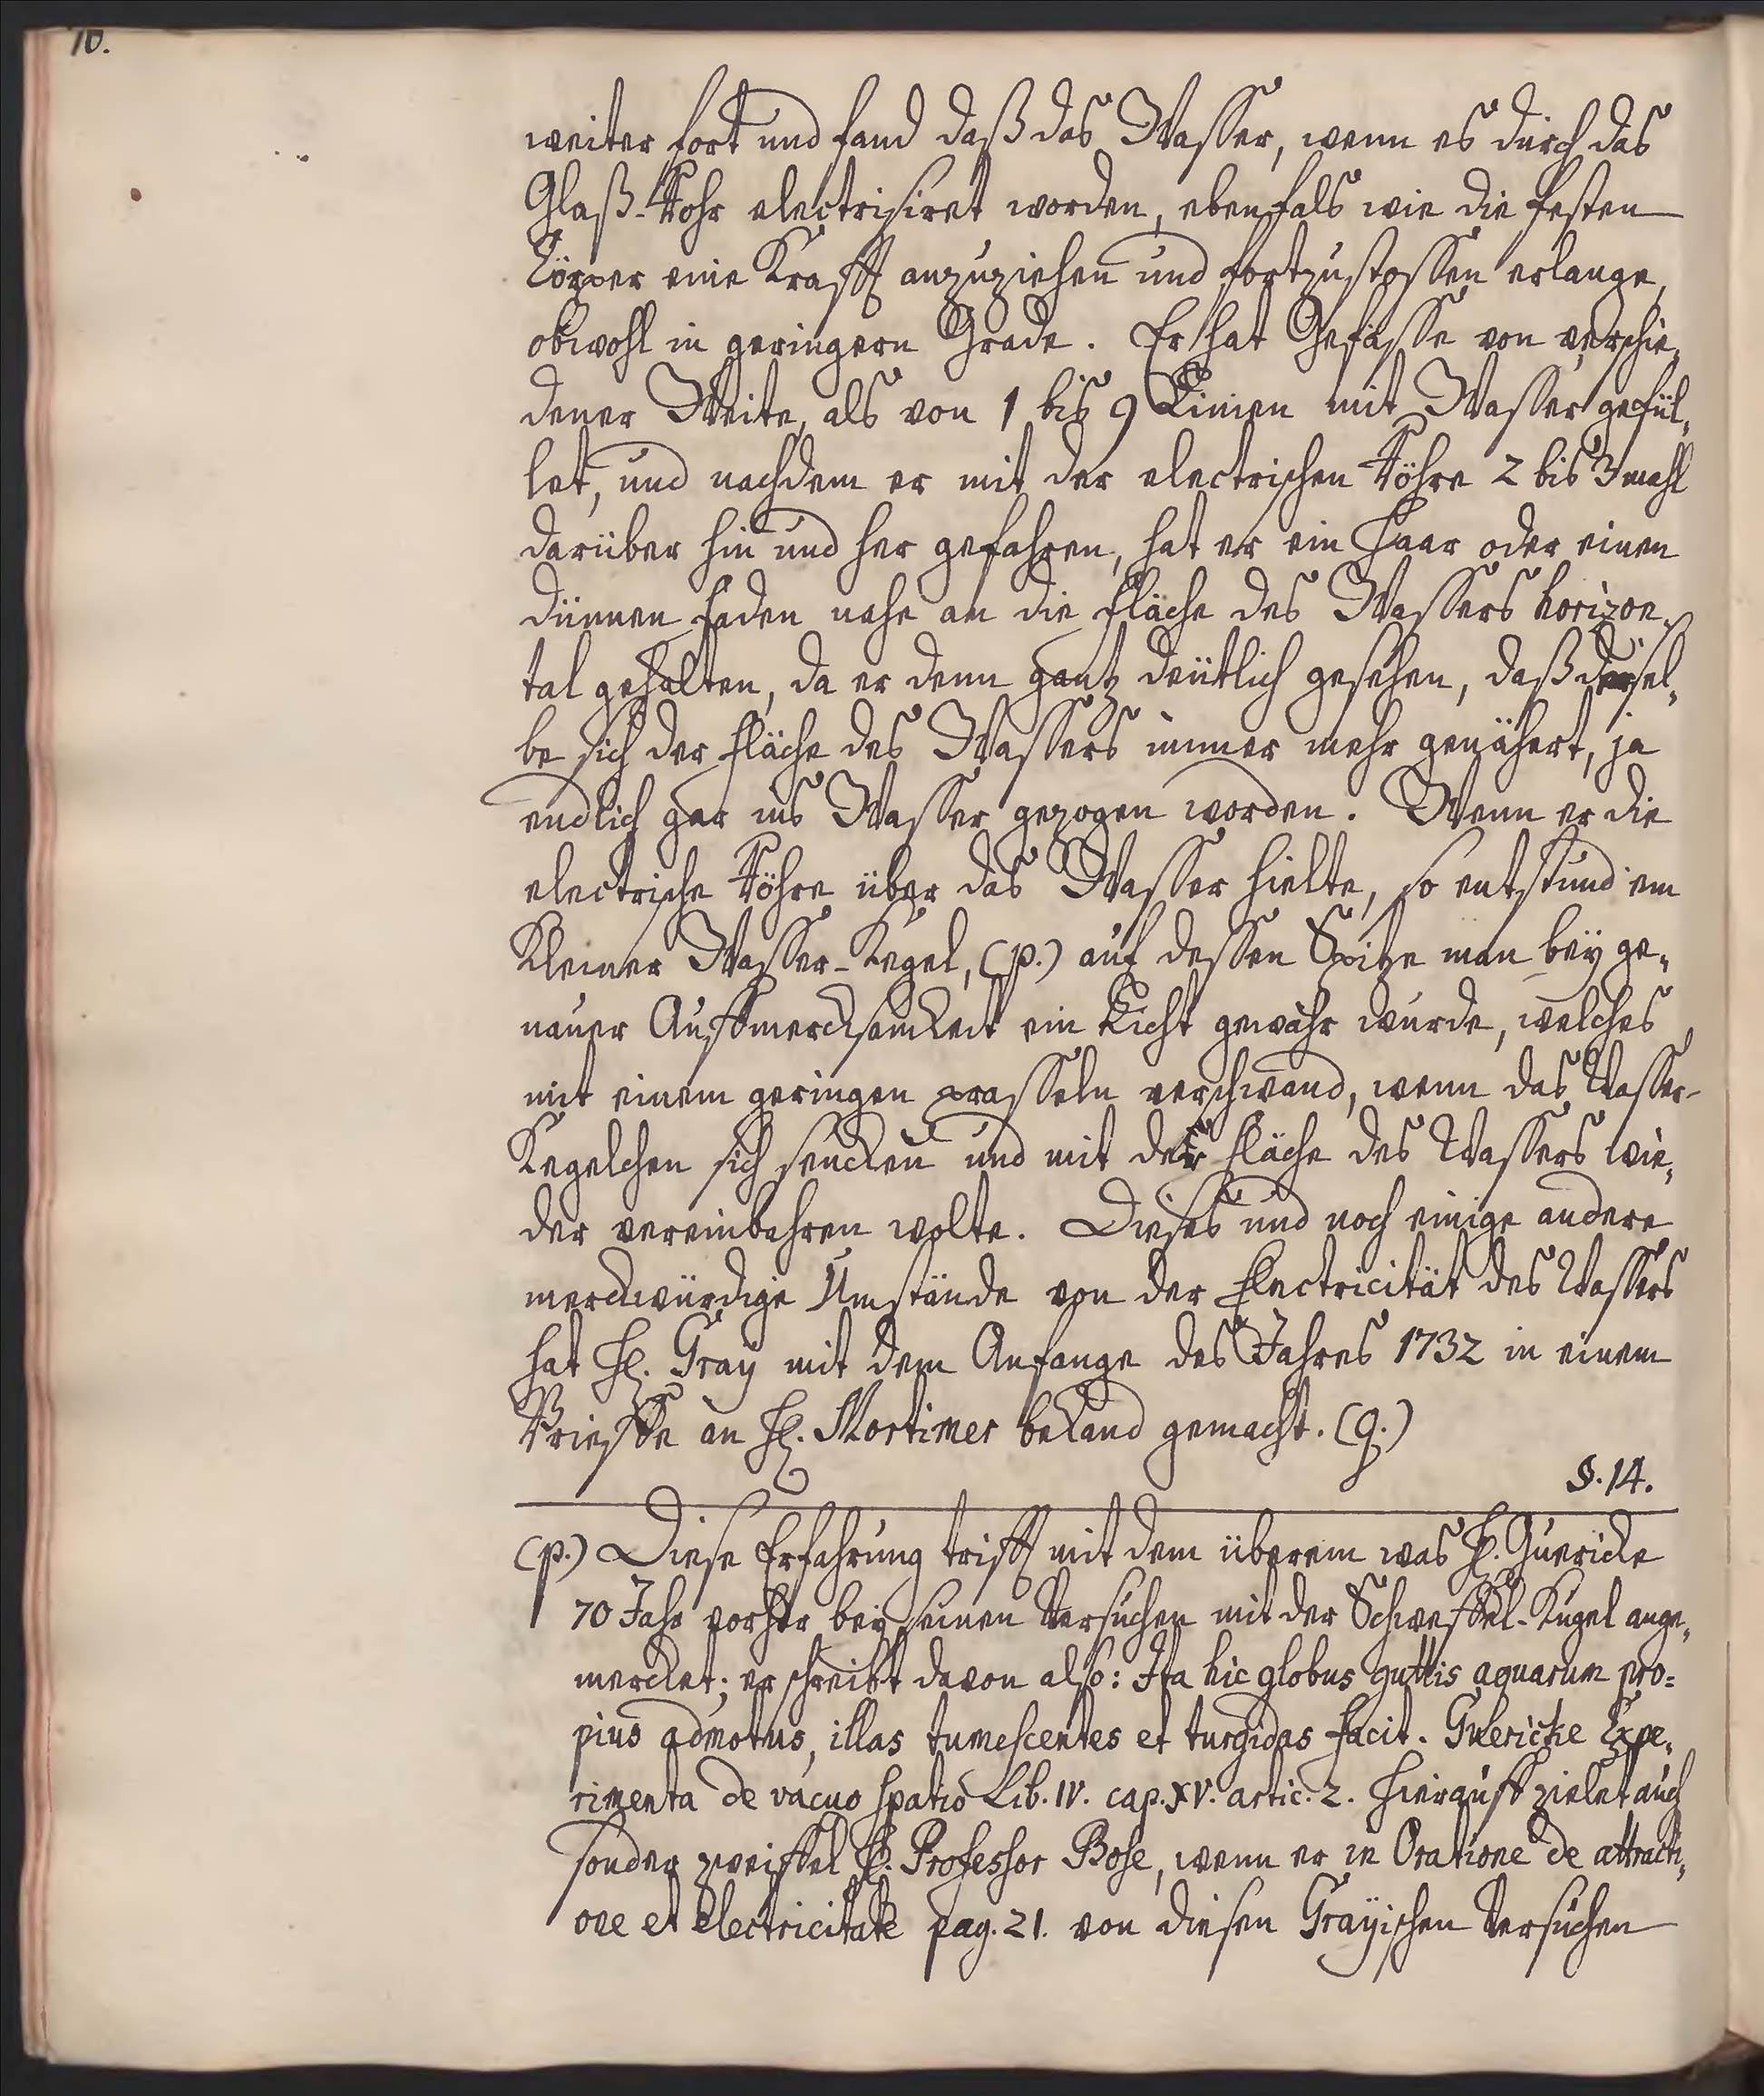 10.
weiter fort und fand daß das Wasser, wenn es durch das
Glaß-Rohr electrisiret worden, ebenfals wie die festen
Cörper eine Krafft anzuziehen und fortzustossen erlange,
obwohl in geringern Grade. Er hat Gefässe von verschie„
dener Weite, als von 1 bis 9 Linien mit Wasser gefül„
let, und nachdem er mit der electrischen Röhre 2 bis 3 mahl
darüber hin und her gefahren, hat er ein Haar oder einen
dünnen Faden nahe an die Fläche des Wassers horizon„
tal gehalten, da er denn gantz deütlich gesehen, daß dersel„
be sich der Fläche des Wassers immer mehr genähert, ja
endlich gar ins Wasser gezogen worden. Wenn er die
electrische Röhre über das Wasser hielte, so entstund ein
kleiner Wasser-Kegel, (p.) auf dessen Spitze man bey ge„
nauer Auffmercksamkeit ein Licht gewahr wurde, welches
mit einem geringen prasseln verschwand, wenn das Wasser-
Kegelchen sich sencken und mit der Fläche des Wassers wie„
der vereinbahren wolte. Dieses und noch einige andere
merckwürdige Umstände von der Electricität des Wassers
hat H. Gray mit dem Anfange des Jahres 1732 in einem
Brieffe an H. Mortimer bekand gemacht. (q.)
§. 14.
(p.) Diese Erfahrung trifft mit dem überein was H. Guericke
70 Jahr vorher bey seinen Versuchen mit der Schweffel-Kugel ange„
mercket; er schreibt davon also: Ita hic globus guttis aquarum pro=
pius admotus, illas tumescentes et turgidas facit. Guericke Expe„
rimenta de vacuo spatio Lib. IV. cap. XV. artic. 2. Hierauff zielet auch
sonder zweiffel H. Professor Bose, wenn er in Oratione de attracti„
one et electricitate pag. 21. von diesen Grayischen Versuchen